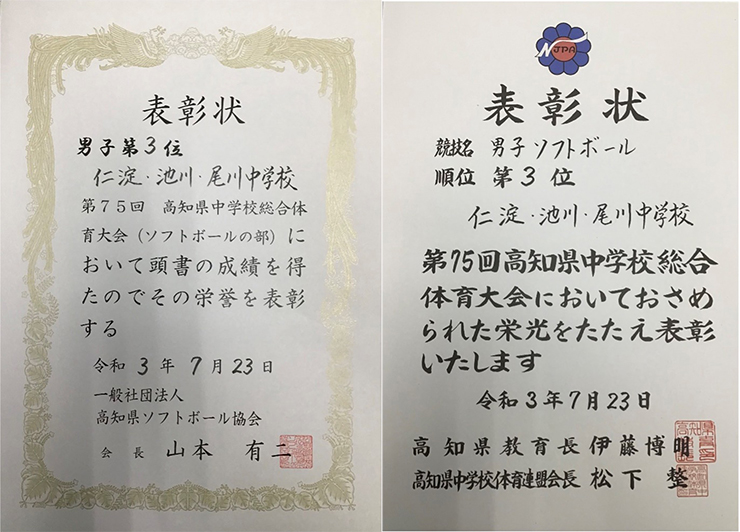 表彰状
男子第3位
仁淀・池川・尾川中学校
第75回 高知県中学校総合体
育大会（ソフトボールの部）に
おいて頭書の成績を得
たのでその栄誉を表彰
する
令和3年7月23日
一般社団法人
高知県ソフトボール協会
会長 山本 有二
NJPA
表彰状
競技名 男子ソフトボール
順位 第3位
仁淀・池川・尾川中学校
第75回高知県中学校総合
体育大会においておさめ
られた栄光をたたえ表彰
いたします
令和3年7月23日
高知県教育長 伊藤博明
高知県中学校体育連盟会長 松下 整